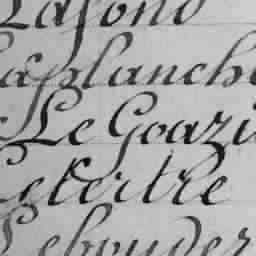 Lafond
Laplanche
Le Goazi
Letertre
Lebouder